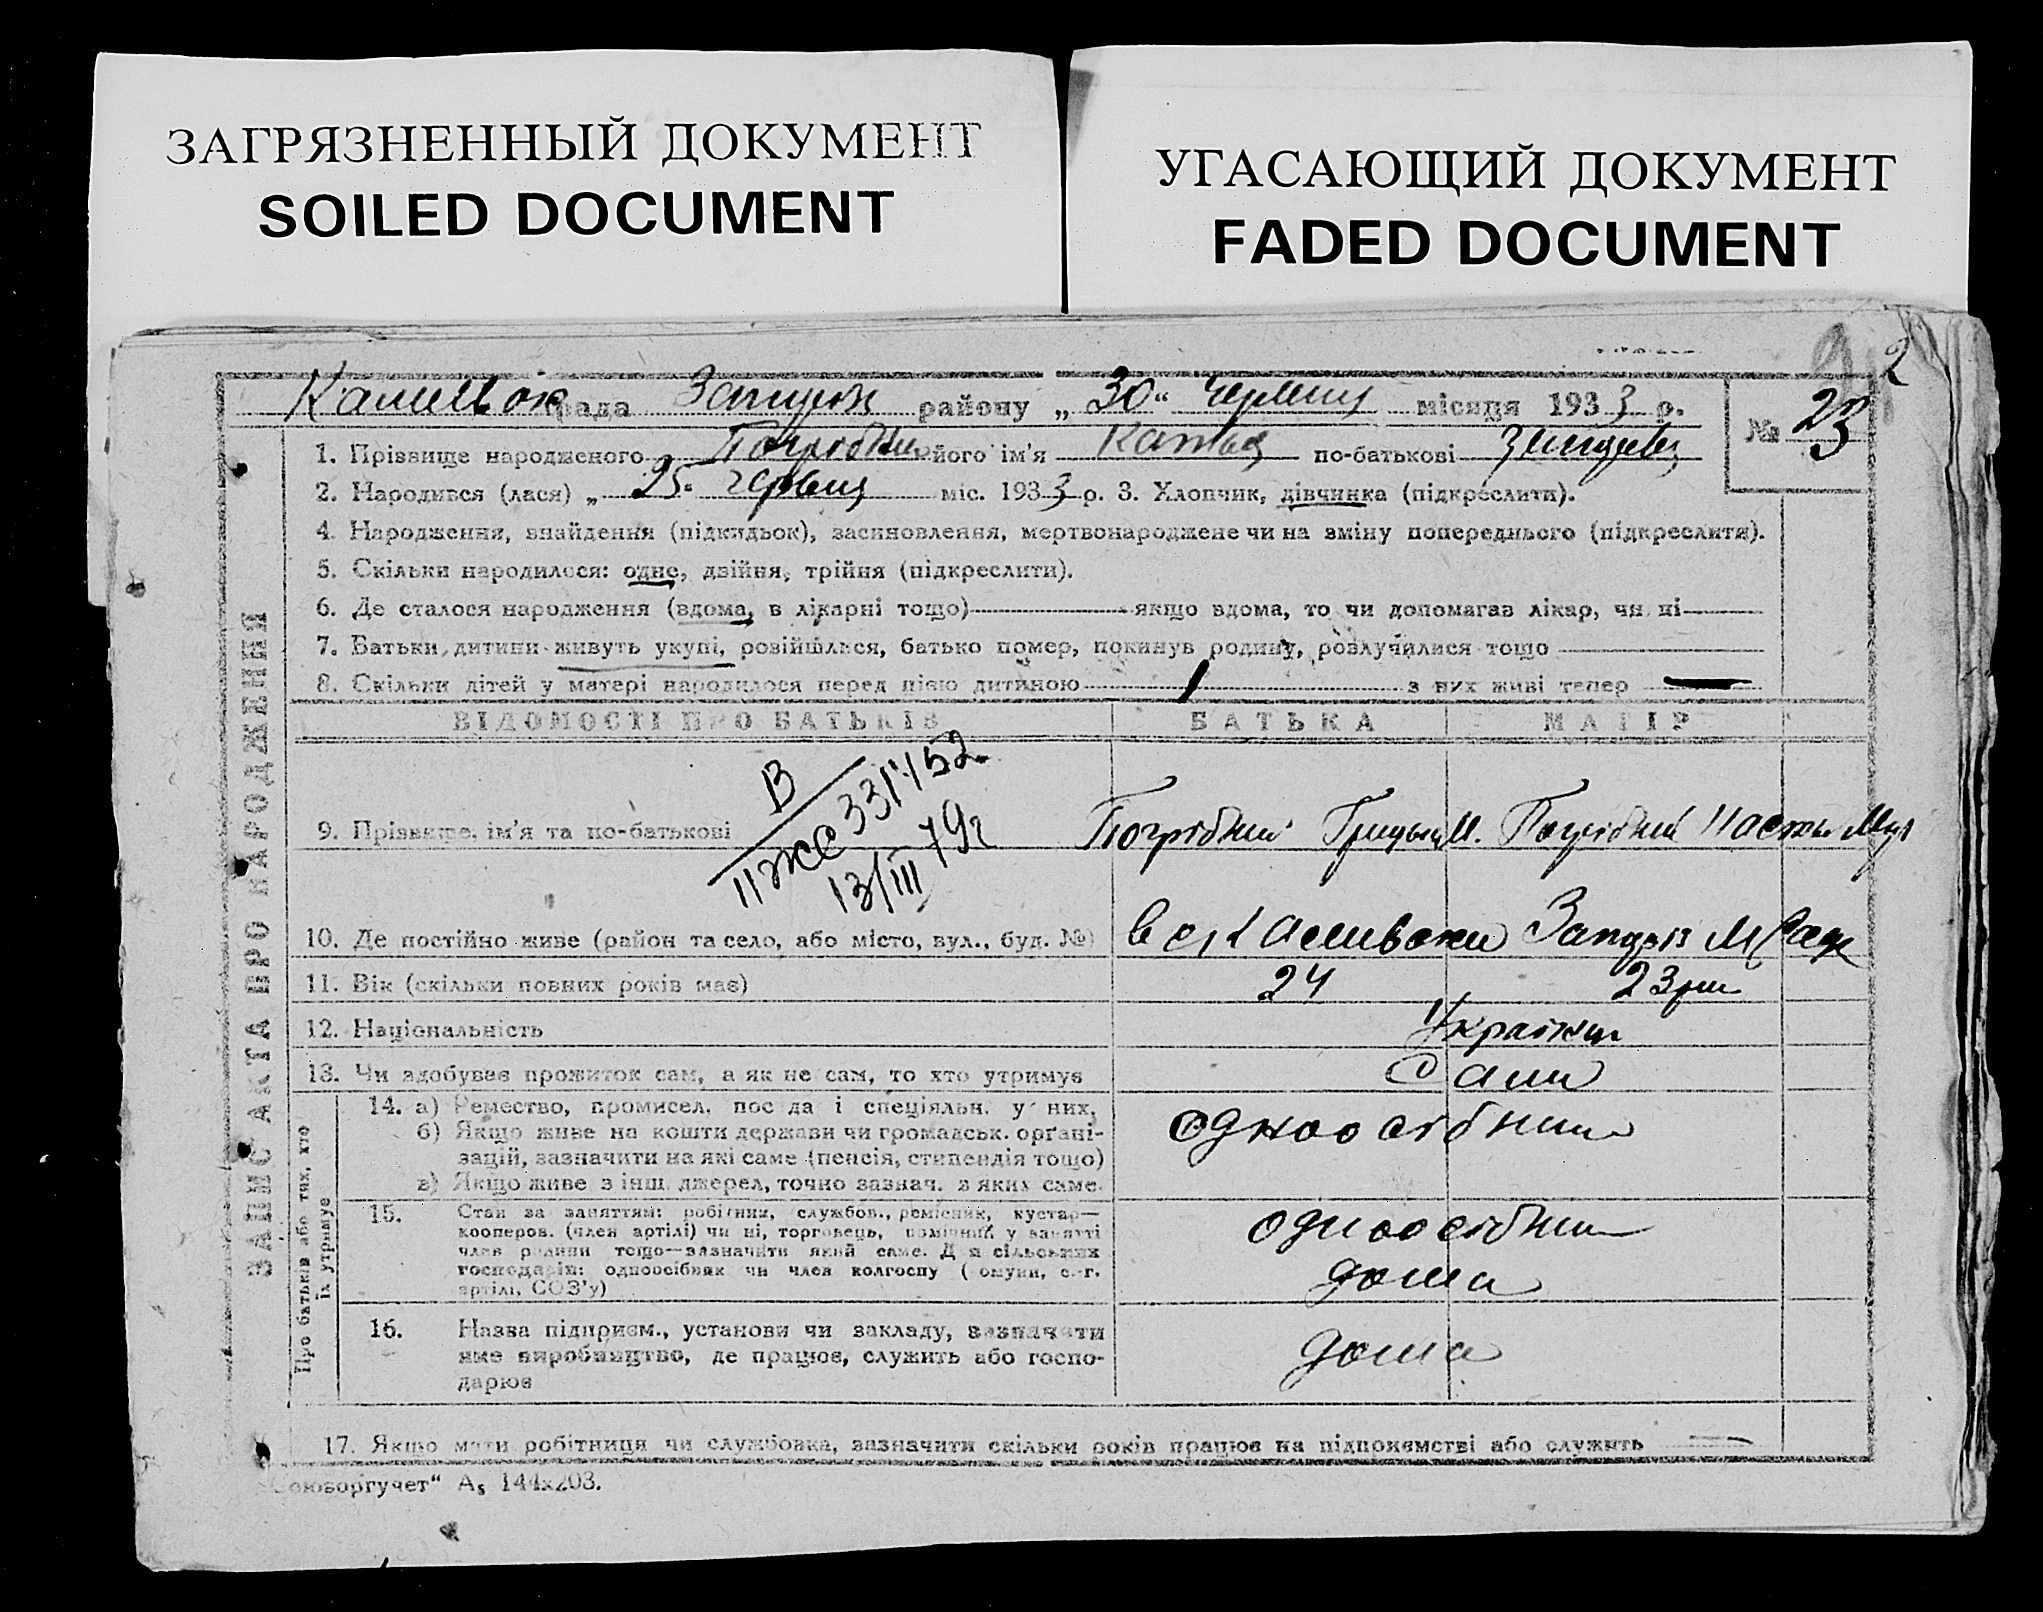 ЗАГРЯЗНЕННЫЙ ДОКУМЕНТ
SOILED DOCUMENT
УГАСАЮЩИЙ ДОКУМЕНТ
FADED DOCUMENT
2
рада району „30“ місяця 1933 р.
№ 23
1. Прізвище народженого його ім'я по-батькові
2. Народився (лася) „25 червця міс. 1933 р. 3. Хлопчик, дівчинка (підкреслити).
4. Народження, знайдення (підкидьок), засиновлення, мертвонароджене чи на зміну попереднього (підкреслити).
5. Скільки народилося: одне, двійня, трійня (підкреслити).
6. Де сталося народження (вдома, в лікарні тощо) якщо вдома, то чи допомагав лікар, чи ні
7. Батьки дитини живуть укупі, розійшлися, батько помер, покинув родину, розлучилися тощо
8. Скільки дітей у матері народилося перед цією дитиною 1 з них живі тепер —
ЗАПИС АКТА ПРО НАРОДЖЕННЯ
ВІДОМОСТІ ПРО БАТЬКІВ БАТЬКА МАТІР
В
II ЖС 331452
13/III 79г
9. Прізвище, ім'я та по-батькові Погрібний Погрібний
10. Де постійно живе (район та село, або місто, вул., буд. №)
11. Вік (скільки повних років має) 24 23
12. Національність
13. Чи здобуває прожиток сам, а як не сам, то хто утримує Сами
Про батьків або тих, хто їх утримує
14. а) Ремество, промисел, посада і спеціяльн. у них,
б) Якщо живе на кошти держави чи громадськ. органі-
зацій, зазначити на які саме (пенсія, стипендія тощо)
в) Якщо живе з інш. джерел, точно зазнач. з яких саме.
одноосібник
15. Стан за заняттям: робітник, службов., ремісник, кустар—
кооперов. (член артілі) чи ні, торговець, помічний у занятті
член родини тощо—зазначити який саме. Для сільських
господарів: одноосібник чи член колгоспу (комуни, с.-г.
артілі, СОЗ'у)
одноосібник
дома
16. Назва підприєм., установи чи закладу, зазначити
яке виробництво, де працює, служить або госпо-
дарює
дома
17. Якщо мати робітниця чи службовка, зазначити скільки років працює на підприємстві або служить —
„Союзоргучет“ А₅ 144х203.